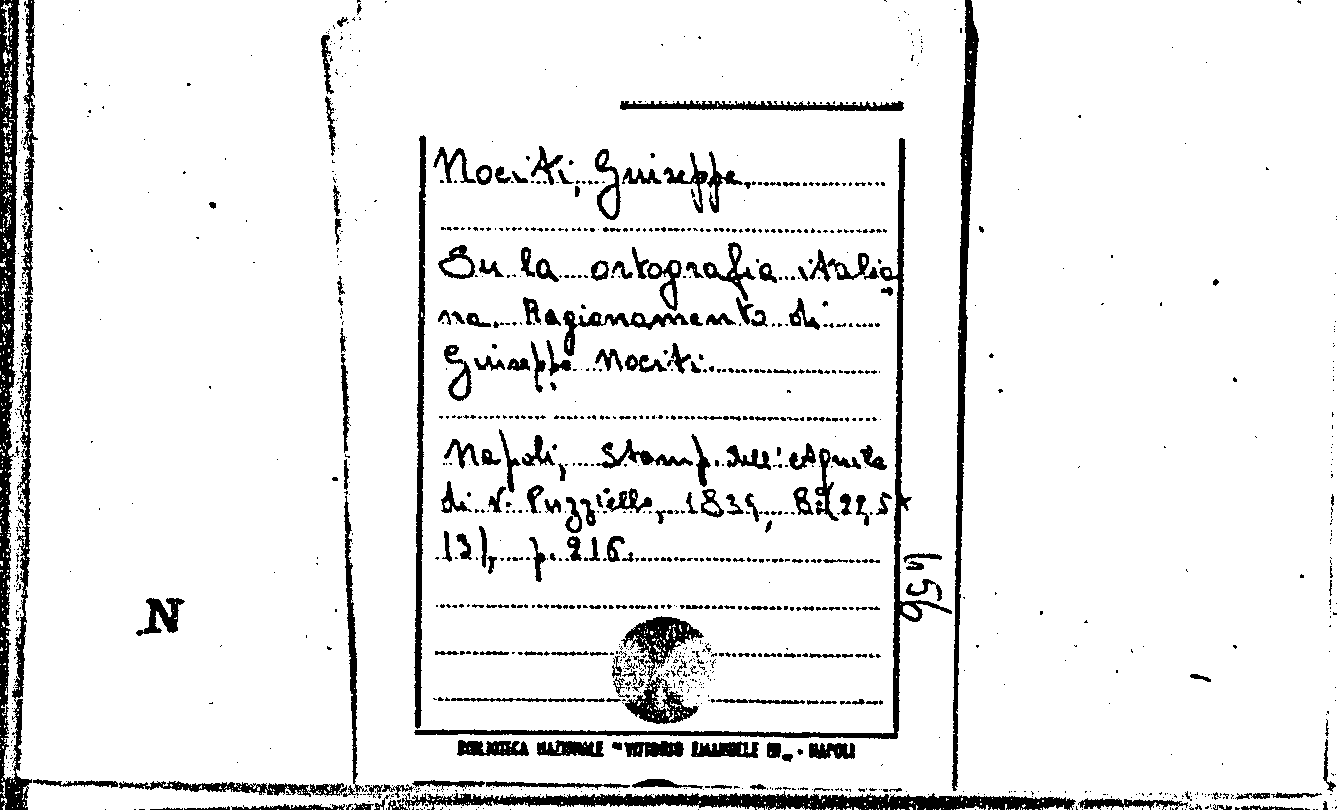 Nociti, Giuseppe.
Su la ortografia italia
na. Ragionamento di
Giuseppe Nociti.
Napoli, Stamp. dell'Aquila
di V. Puzziello, 1839, 8° (22,5 x
13), p. 216.
456
N
BIBLIOTECA NAZIONALE "VITTORIO EMANUELE III" - NAPOLI